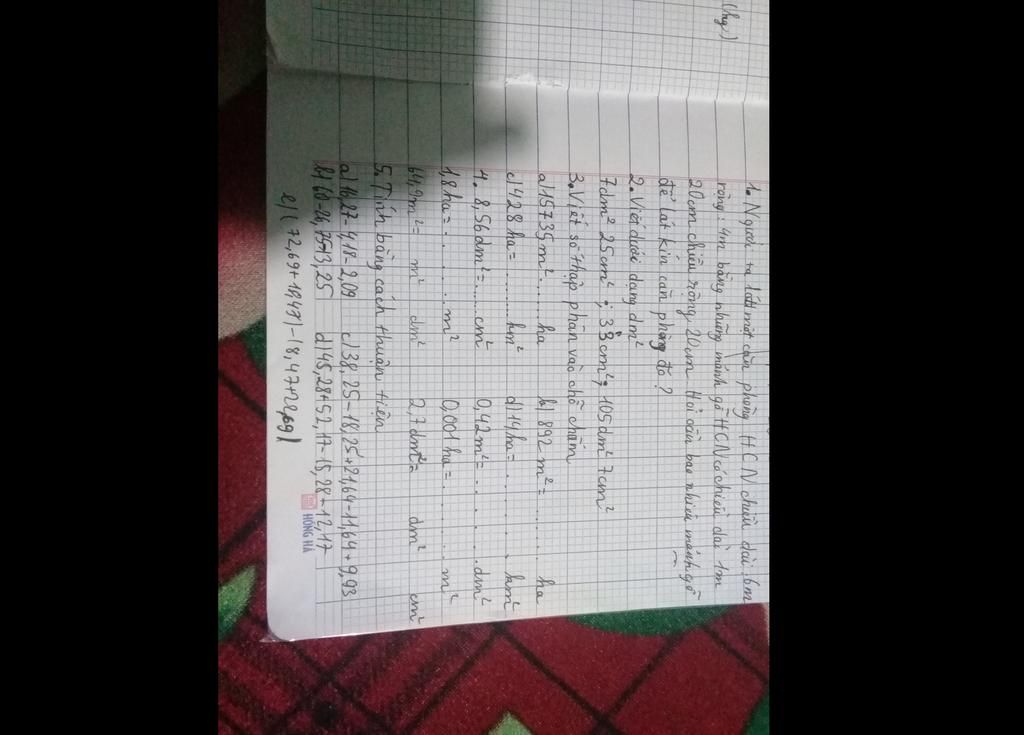 (hg)
1. Người ta lát một căn phòng HCN chiều dài: 6m
rộng: 4m bằng những mảnh gỗ HCN có chiều dài 1m
20cm chiều rộng 20cm Hỏi cần bao nhiêu mảnh gỗ
để lát kín căn phòng đó?
2. Viết dưới dạng dm²
7dm² 25cm²; 33cm²; 105dm² 7cm²
3. Viết số thập phân vào chỗ chấm
a) 15735m².....ha b) 892m²=........ha
c) 428ha=........km² d) 14ha=........km²
4. 8,56dm²=.....cm² 0,42m²=......dm²
1,8ha=.....m² 0,001ha=.....m²
64,9m²= m² dm² 2,7dm²= dm² cm²
5. Tính bằng cách thuận tiện
a) 16,27-4,18-2,09 c) 38,25-18,25+21,64-11,64+9,93
b) 60-26,75-13,25 d) 45,28+52,17-15,28-12,17
e) (72,69+18,47)-(8,47+22,69)
HỒNG HÀ